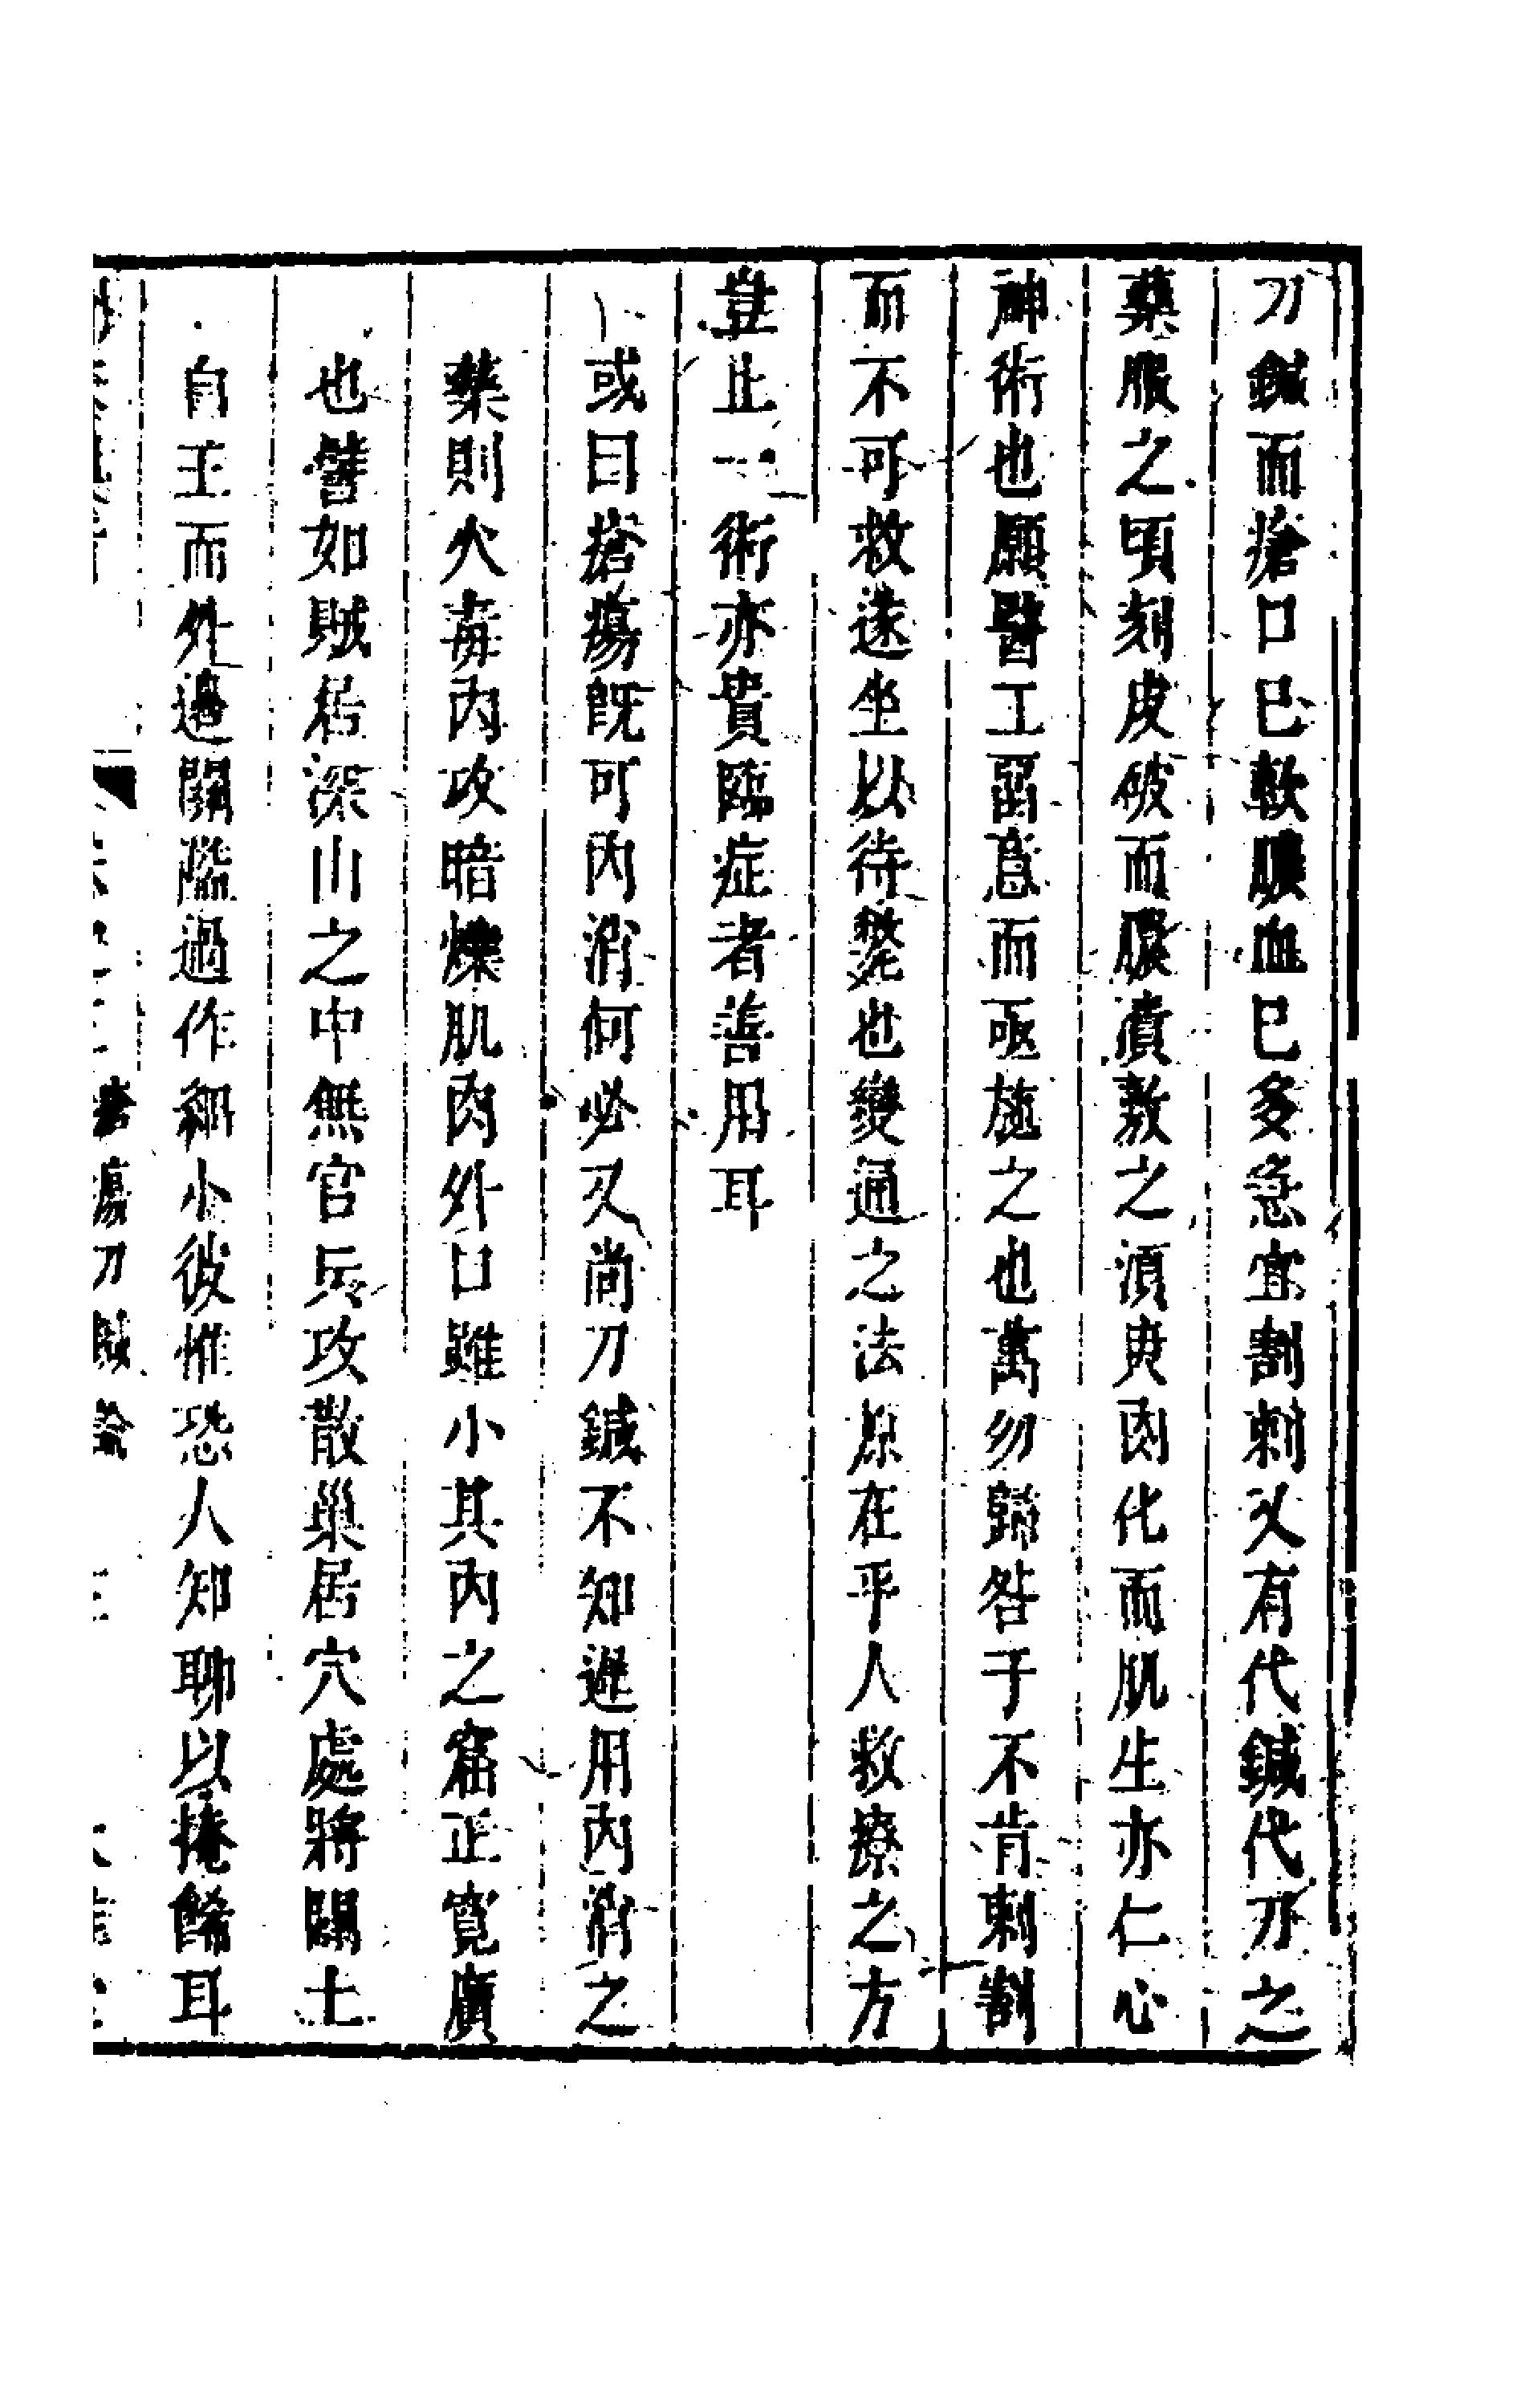 刀鍼而瘡口已軟膿血已多急宜割刺又有代鍼代刀之
藥服之頃刻皮破而膿潰敷之須臾肉化而肌生亦仁心
神術也願醫工留意而亟施之也萬勿歸咎于不肯刺割
而不可救遂坐以待斃也變通之法原在乎人救療之方
豈止一術亦貴臨症者善用耳
或曰瘡瘍既可內消何必又尚刀鍼不知遲用內消之
藥則火毒內攻暗爍肌肉外口雖小其內之窟正寬廣
也譬如賊居深山之中無官兵攻散巢居穴處將闢土
自王而外邊關隘過作細小彼惟恐人知聊以掩餙耳
瘡瘍刀鍼論